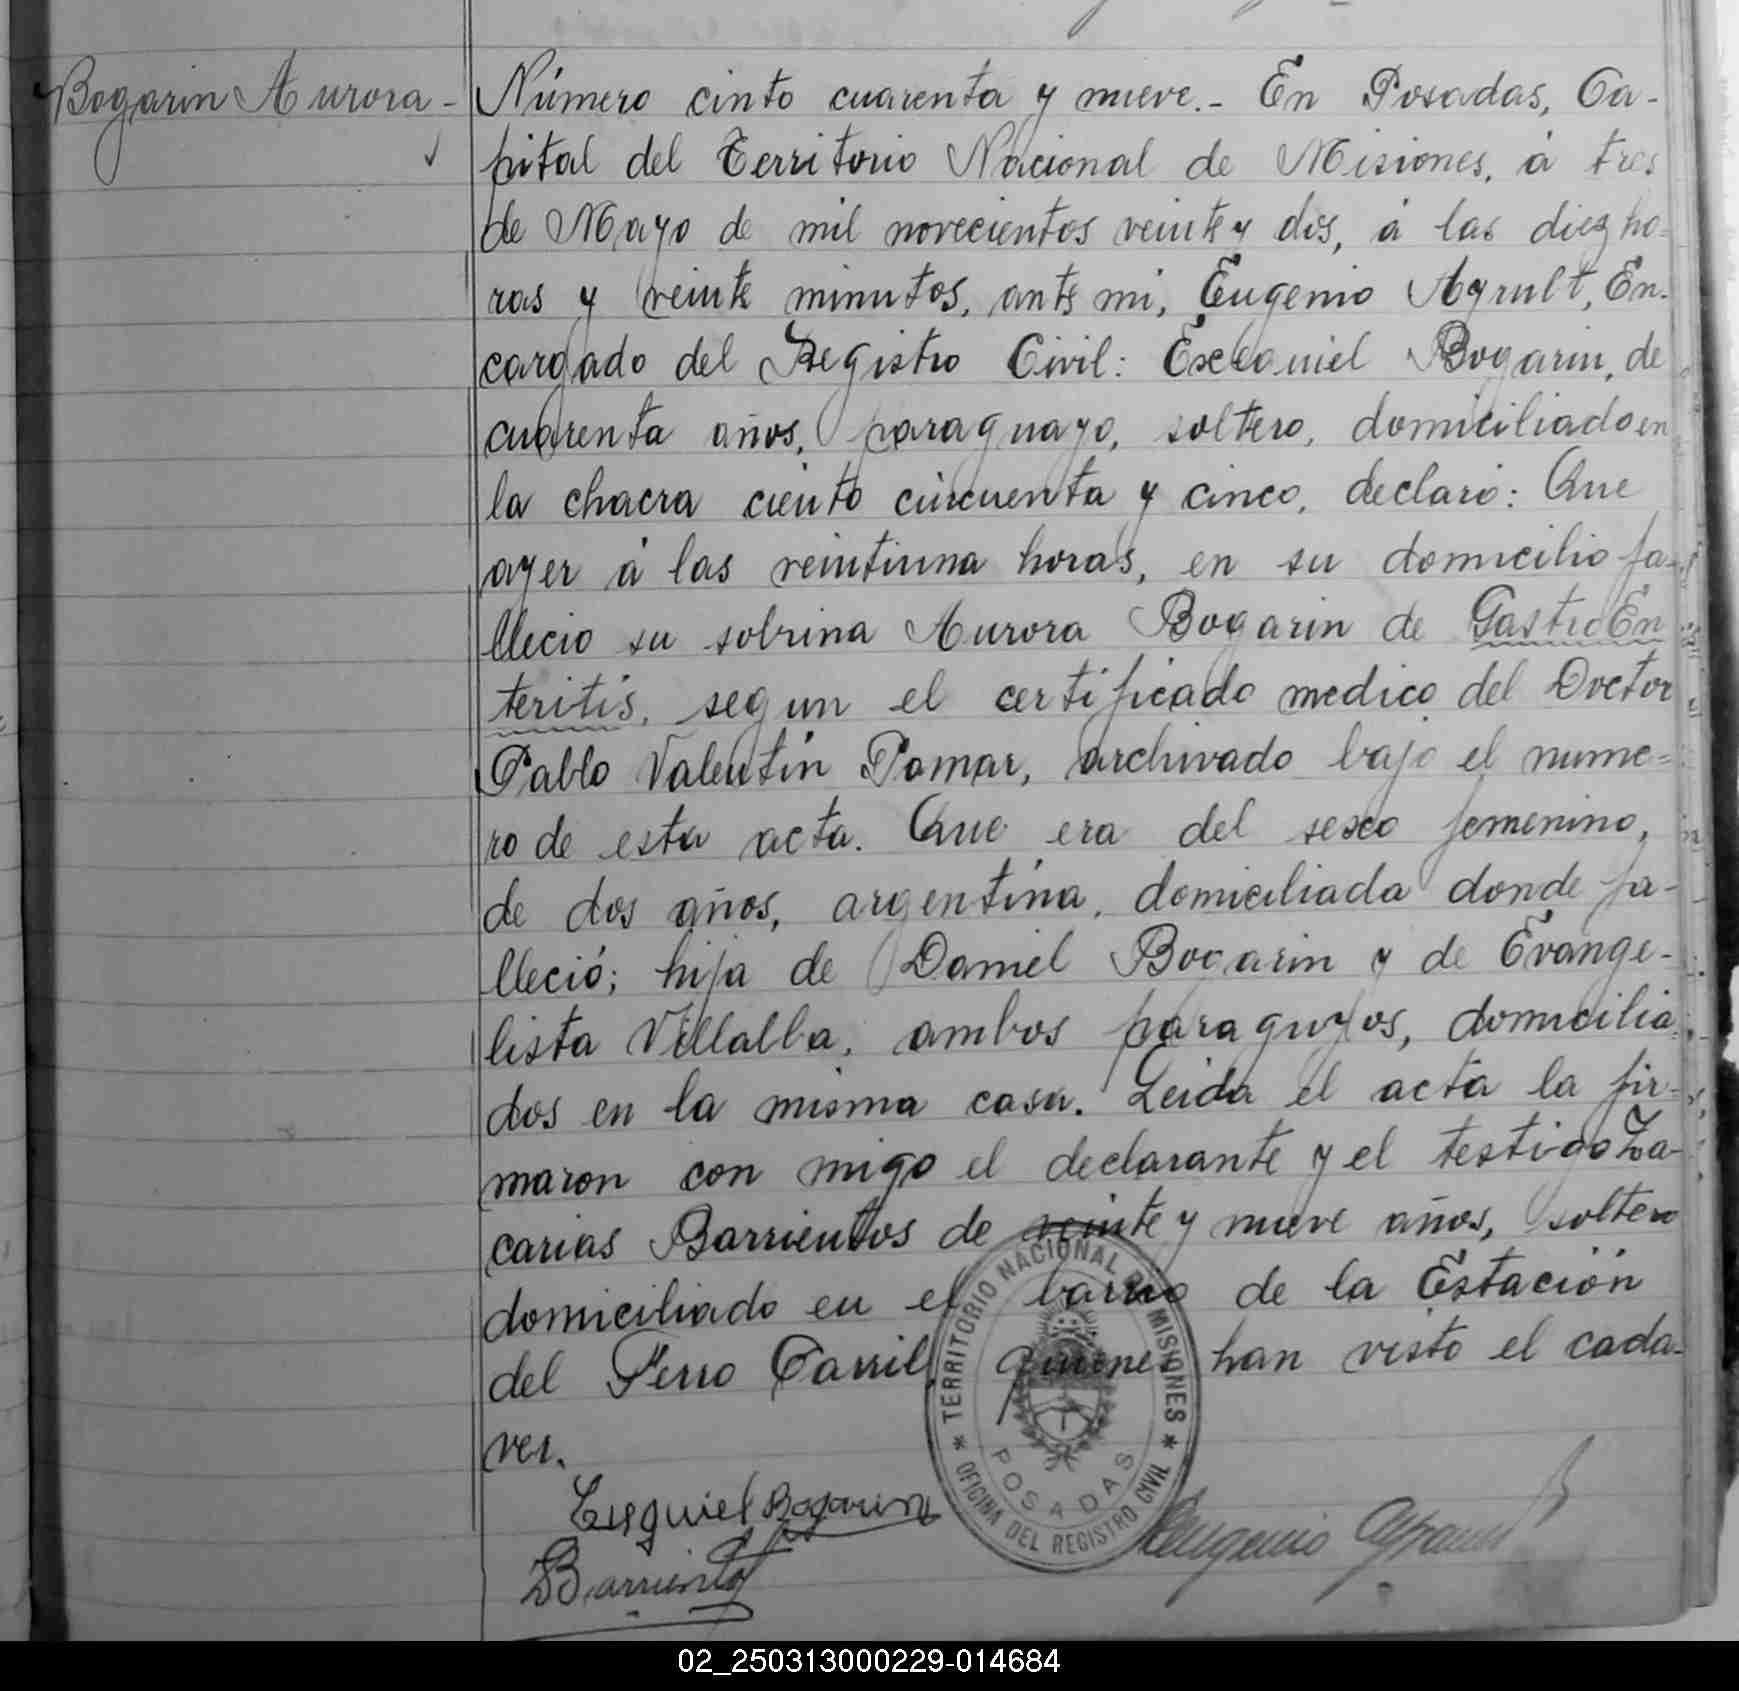 Bogarin Aurora-
Número cinto cuarenta y nueve.- En Posadas, Ca-
pital del Territorio Nacional de Misiones, á tres
de Mayo de mil novecientos veinte y dos, á las diez ho-
ras y veinte minutos, ante mi, Eugenio Agrult, En-
cargado del Registro Civil: Execquiel Bogarin, de
cuarenta años, paraguayo, soltero, domiciliado en
la chacra ciento cincuenta y cinco, declaró: Que
ayer á las veintiuna horas, en su domicilio fa-
llecio su sobrina Aurora Bogarin de GastroEn
teritis, segun el certificado medico del Doctor
Pablo Valentin Pomar, archivado bajo el nume-
ro de esta acta. Que era del sexo femenino,
de dos años, argentina, domiciliada donde fa-
lleció; hija de Daniel Bogarin y de Evange-
lista Villalba, ambos paraguyos, domicilia-
dos en la misma casa. Leida el acta la fir-
maron con migo el declarante y el testigo Za-
carias Barrientos de veinte y nueve años, soltero
domiciliado en el barrio de la Estación
del Ferro Carril, quienes han visto el cada-
ver.
Ezequiel Bogarin
Barrientos
Eugenio
TERRITORIO NACIONAL DE MISIONES
POSADAS
* OFICINA DEL REGISTRO CIVIL *
02_250313000229-014684